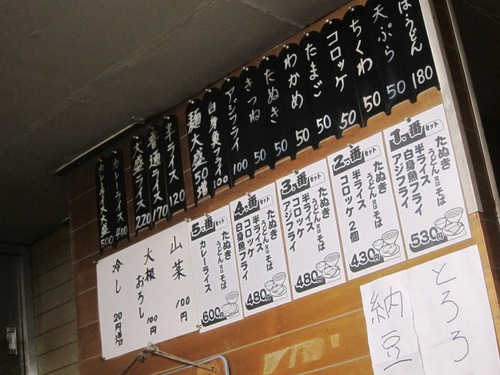 はうどん 180
天ぷら 50
ちくわ 50
コロッケ 50
たまご 50
わかめ 50
たぬき 50
きつね 50
アジフライ 100
白身魚フライ 100
麺大盛 50増
半ライス 120
普通ライス 170
大盛ライス 220
カレーライス 400
カレーライス大盛 500
1番セット
たぬき
うどん又はそば
半ライス
白身魚フライ
アジフライ
530円
2番セット
たぬき
うどん又はそば
半ライス
コロッケ2個
430円
3番セット
たぬき
うどん又はそば
半ライス
コロッケ
アジフライ
480円
4番セット
たぬき
うどん又はそば
半ライス
コロッケ
白身魚フライ
480円
5番セット
たぬき
うどん又はそば
カレーライス
600円
山菜 100円
大根おろし 100円
冷し 20円増
とろろ
納豆